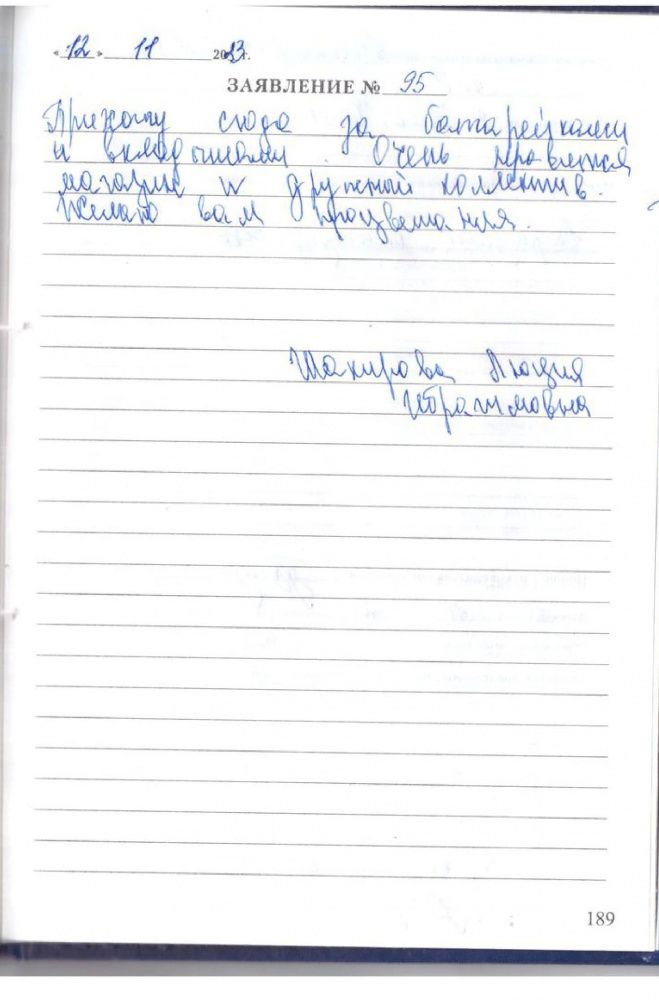 «12» 11 2013г.
ЗАЯВЛЕНИЕ № 95
Прихожу сюда за батарейками
и вкладышами. Очень нравится
магазин и дружный коллектив.
Желаю вам процветания.
Шакирова Люция
Ибрагимовна
189